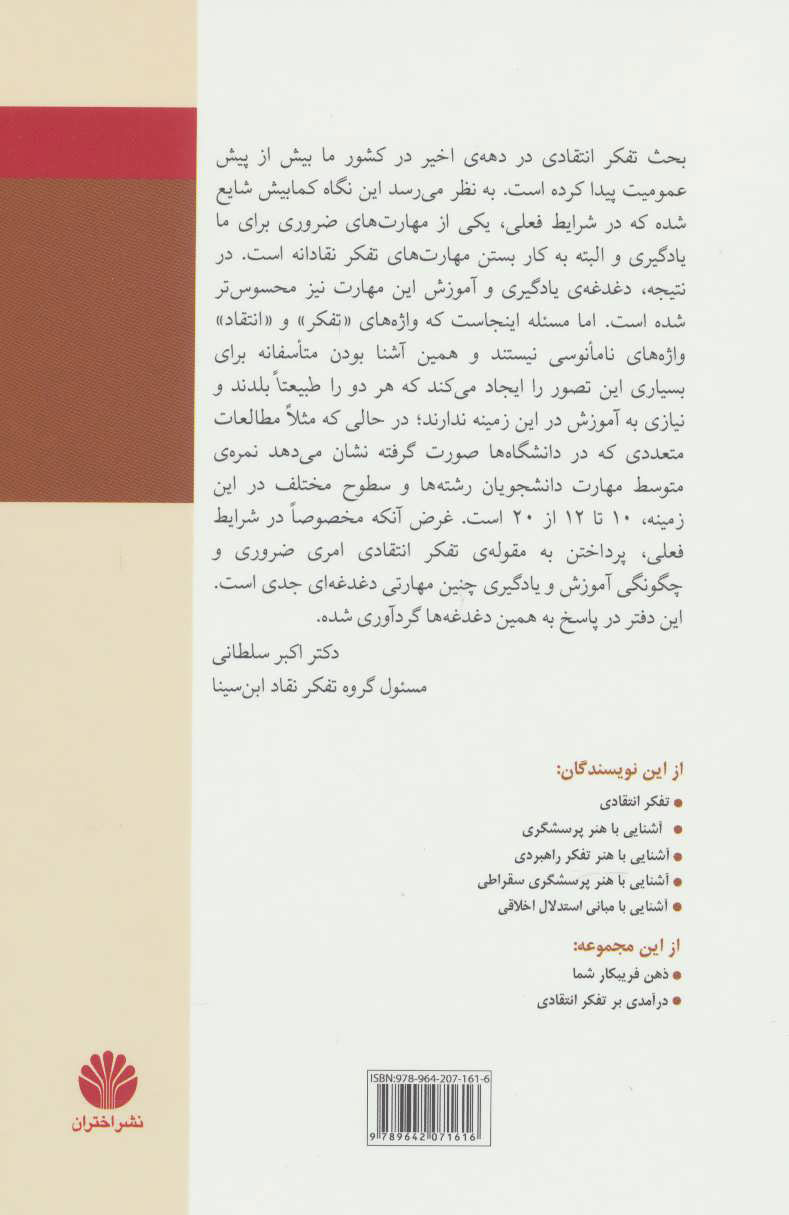 بحث تفکر انتقادی در دهه‌ی اخیر در کشور ما بیش از پیش
عمومیت پیدا کرده است. به نظر می‌رسد این نگاه کمابیش شایع
شده که در شرایط فعلی، یکی از مهارت‌های ضروری برای ما
یادگیری و البته به کار بستن مهارت‌های تفکر نقادانه است. در
نتیجه، دغدغه‌ی یادگیری و آموزش این مهارت نیز محسوس‌تر
شده است. اما مسئله اینجاست که واژه‌های «تفکر» و «انتقاد»
واژه‌های نامأنوسی نیستند و همین آشنا بودن متأسفانه برای
بسیاری این تصور را ایجاد می‌کند که هر دو را طبیعتاً بلدند و
نیازی به آموزش در این زمینه ندارند؛ در حالی که مثلاً مطالعات
متعددی که در دانشگاه‌ها صورت گرفته نشان می‌دهد نمره‌ی
متوسط مهارت دانشجویان رشته‌ها و سطوح مختلف در این
زمینه، ۱۰ تا ۱۲ از ۲۰ است. غرض آنکه مخصوصاً در شرایط
فعلی، پرداختن به مقوله‌ی تفکر انتقادی امری ضروری و
چگونگی آموزش و یادگیری چنین مهارتی دغدغه‌ای جدی است.
این دفتر در پاسخ به همین دغدغه‌ها گردآوری شده.
دکتر اکبر سلطانی
مسئول گروه تفکر نقاد ابن‌سینا
از این نویسندگان:
● تفکر انتقادی
● آشنایی با هنر پرسشگری
● آشنایی با هنر تفکر راهبردی
● آشنایی با هنر پرسشگری سقراطی
● آشنایی با مبانی استدلال اخلاقی
از این مجموعه:
● ذهن فریبکار شما
● درآمدی بر تفکر انتقادی
نشر اختران
ISBN:978-964-207-161-6
9 789642 071616